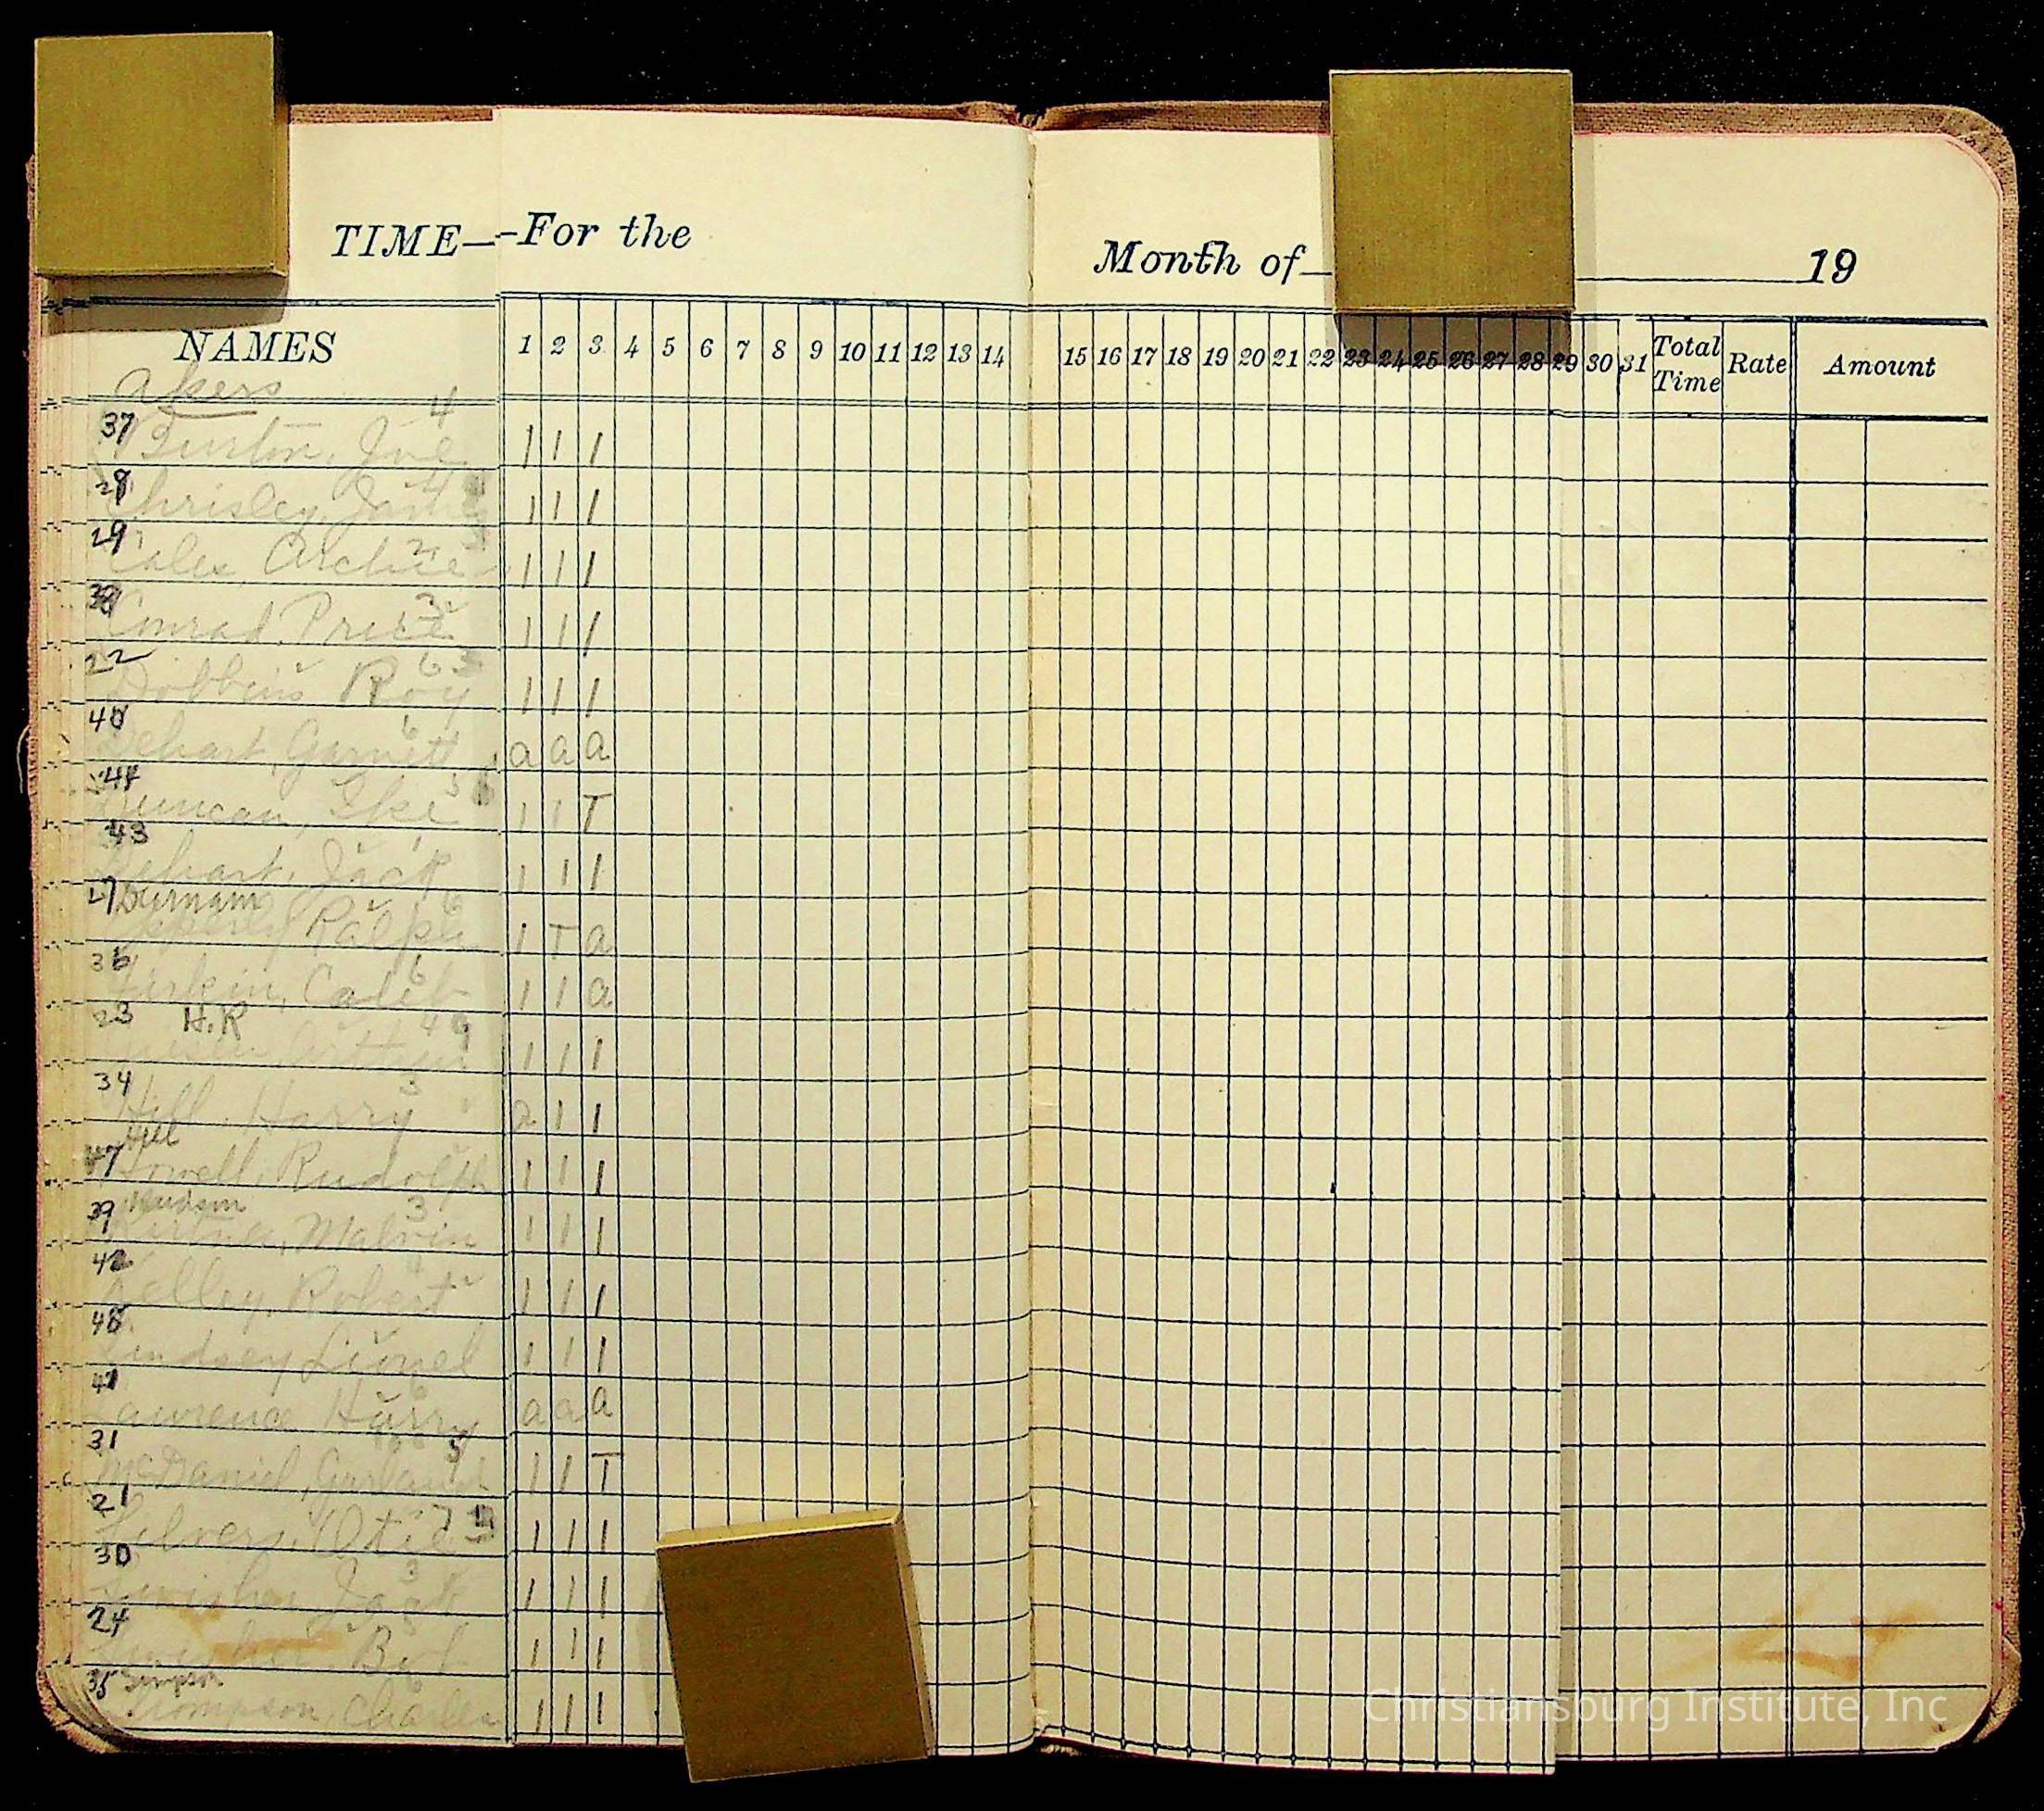 TIME—-For the Month of 19
NAMES 1 2 3 4 5 6 7 8 9 10 11 12 13 14 15 16 17 18 19 20 21 22 23 24 25 26 27 28 29 30 31 Total Time Rate Amount
Akers
37 4
Burton, Joe 1 1 1
Chrisley, 1 1 1
29
Coles, Archie 1 1 1
Conrad, Price 1 1 1
22 6
Dobbins Roy 1 1 1
Dehart, Garnett a a a
44
Duncan, Ike 1 1 T
43
Dehart, Jack 1 1 1
27 Burnam 6
Ralph 1 T a
36 6
Caleb 1 1 a
23 H.R
Arthur 1 1 1
34 3
Hill, Harry a 1 1
Hill
47
Howell, Rudolph 1 1 1
39 Hudson 3
Malvin 1 1 1
42
Kelley, Robert 1 1 1
48
Lindsey Lionel 1 1 1
Lawrence Harry a a a
31 5
McDaniel, Garland 1 1 T
21 7
Silvers, Otis 1 1 1
30 3
Jack 1 1 1
24
Bob 1 1 1
35 Simpson 6
Thompson, Charles 1 1 1
Christiansburg Institute, Inc